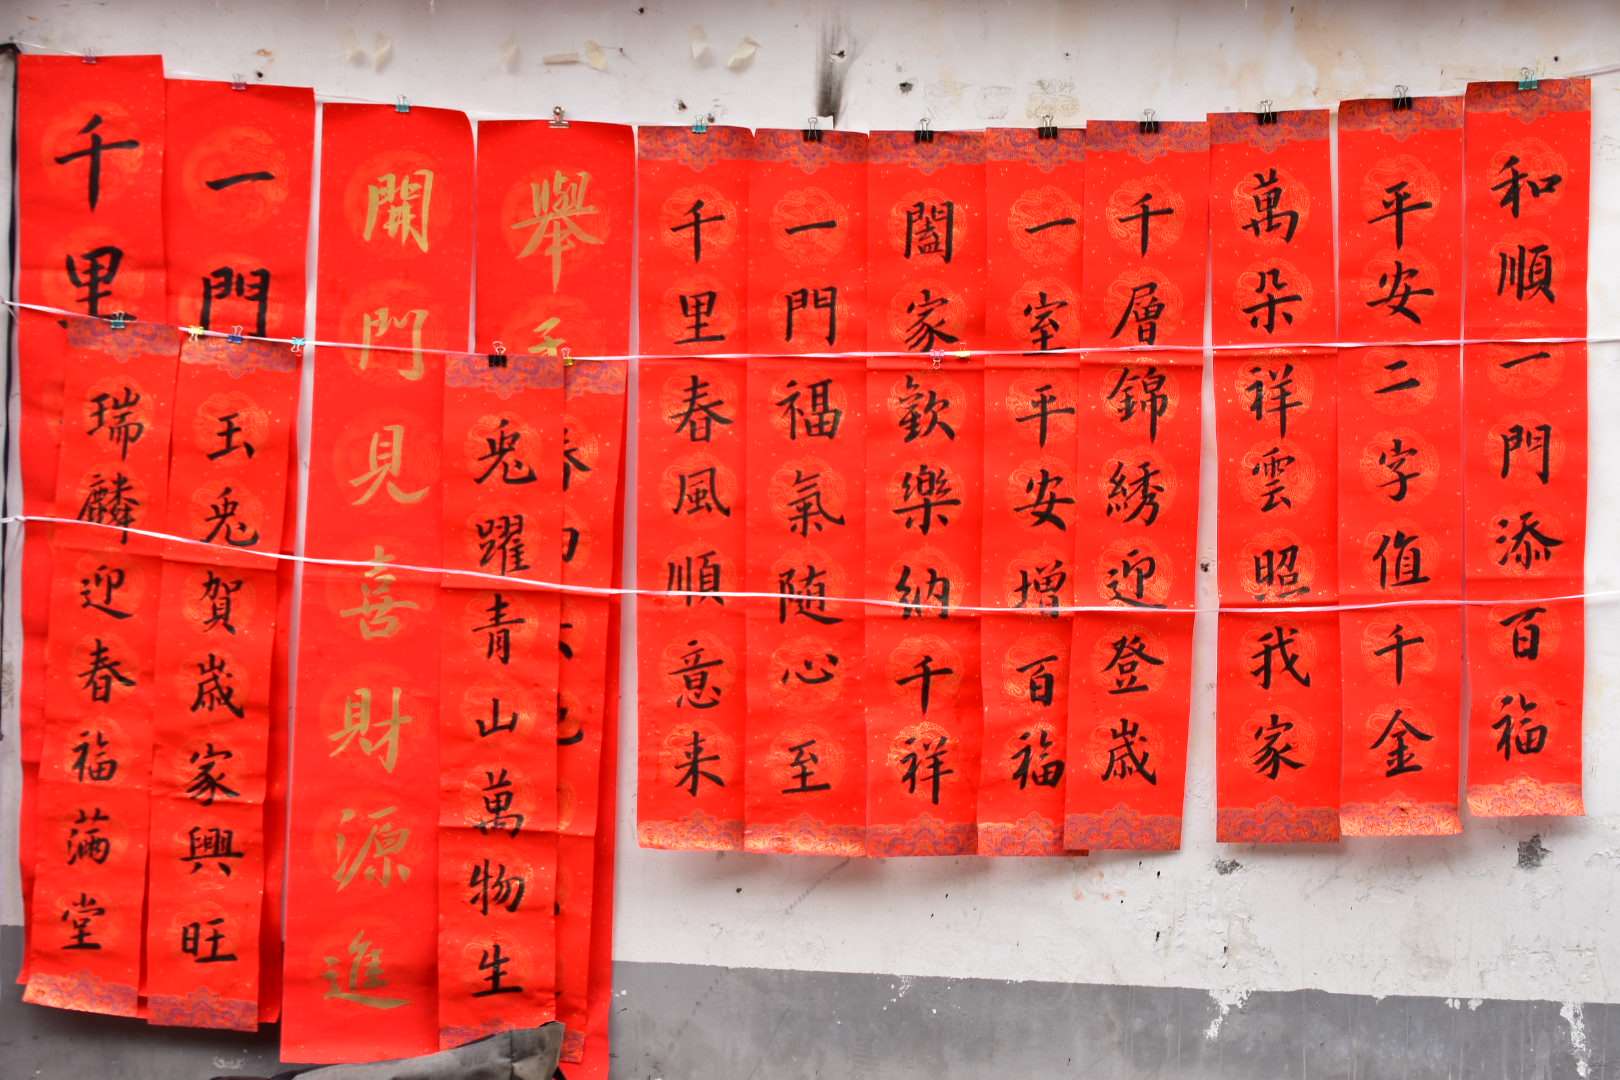 和順一門添百福
平安二字值千金
萬朵祥雲照我家
千層錦綉迎登歲
一室平安增百福
闔家歡樂納千祥
一門福氣随心至
千里春風順意来
舉
兔躍青山萬物生
開門見喜財源進
一門
玉兔賀歲家興旺
千里
瑞麟迎春福滿堂